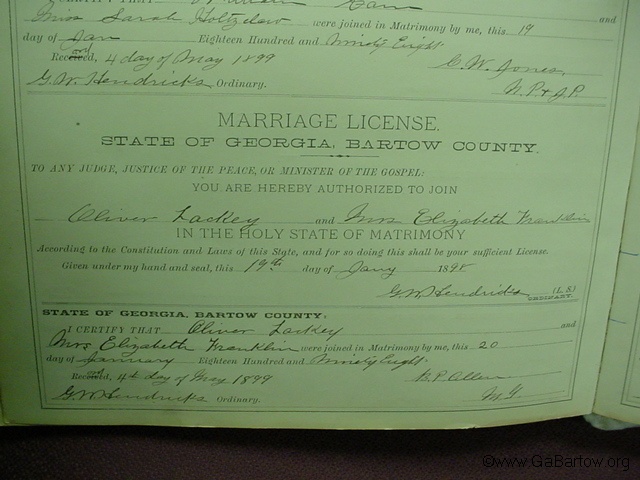 Mrs Sarah Holtzclaw were joined in Matrimony by me, this 19 and
day of Jan Eighteen Hundred and Ninety Eight
Recorded, 4 day of May 1899 C. W. Jones,
G. W. Hendricks Ordinary. N. P. & J. P.
MARRIAGE LICENSE.
STATE OF GEORGIA, BARTOW COUNTY.
TO ANY JUDGE, JUSTICE OF THE PEACE, OR MINISTER OF THE GOSPEL:
YOU ARE HEREBY AUTHORIZED TO JOIN
Oliver Lackey and Mrs Elizabeth Franklin
IN THE HOLY STATE OF MATRIMONY
According to the Constitution and Laws of this State, and for so doing this shall be your sufficient License.
Given under my hand and seal, this 19th day of Jany 1898
G. W. Hendricks (L. S.)
ORDINARY.
STATE OF GEORGIA, BARTOW COUNTY:
I CERTIFY THAT Oliver Lackey and
Mrs Elizabeth Franklin were joined in Matrimony by me, this 20
day of January Eighteen Hundred and Ninety Eight.
Recorded, 4th day of May 1899 Allen
G. W. Hendricks Ordinary. M. G.
©www.GaBartow.org